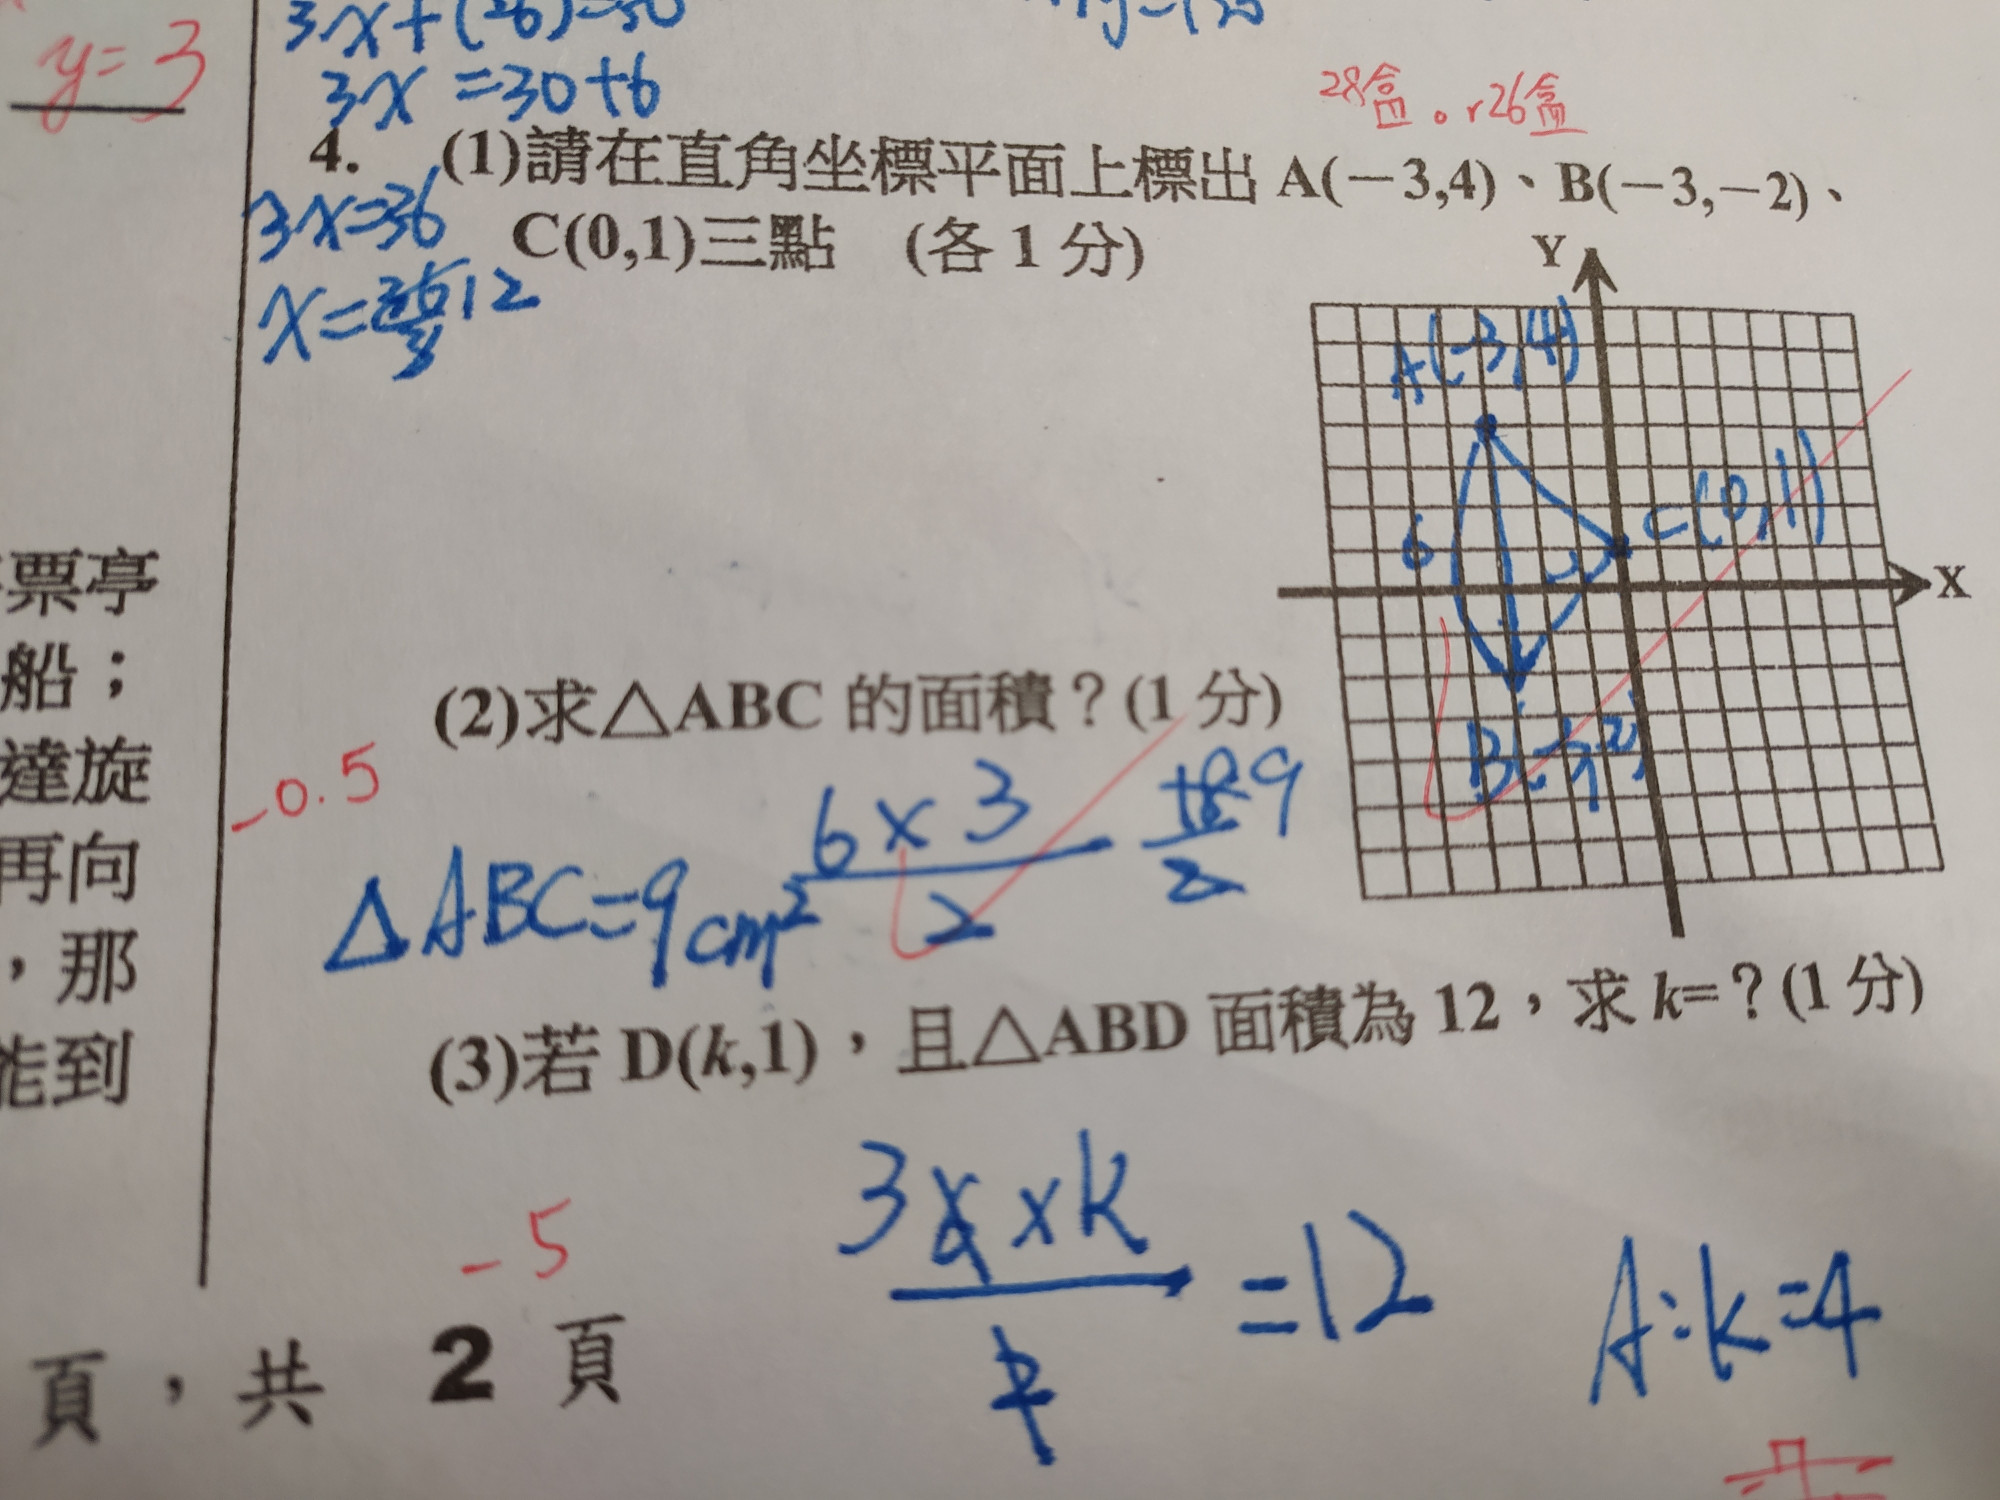 y=3
3x+(-6)=30
3x=30+6
28盒or26盒
4. (1)請在直角坐標平面上標出 A(－3,4)、B(－3,－2)、
3x=36
C(0,1)三點 (各 1 分)
x=36/3 12
Y
A(-3,4)
C(0,1)
6
X
票亭
船；
(2)求△ABC 的面積？(1 分)
B(-3,-2)
達旋
-0.5
6×3/2 18/2 9
再向
△ABC=9cm²
，那
(3)若 D(k,1)，且△ABD 面積為 12，求 k=？(1 分)
能到
-5
3 × k =12
A:k=4
頁，共 2 頁